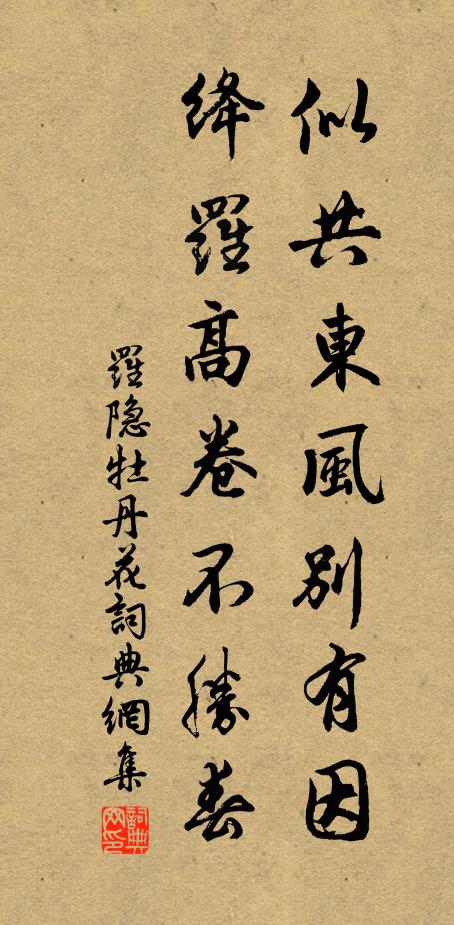 似共東風別有因
絳羅高卷不勝春
羅隐牡丹花詞典網集
詞典網印